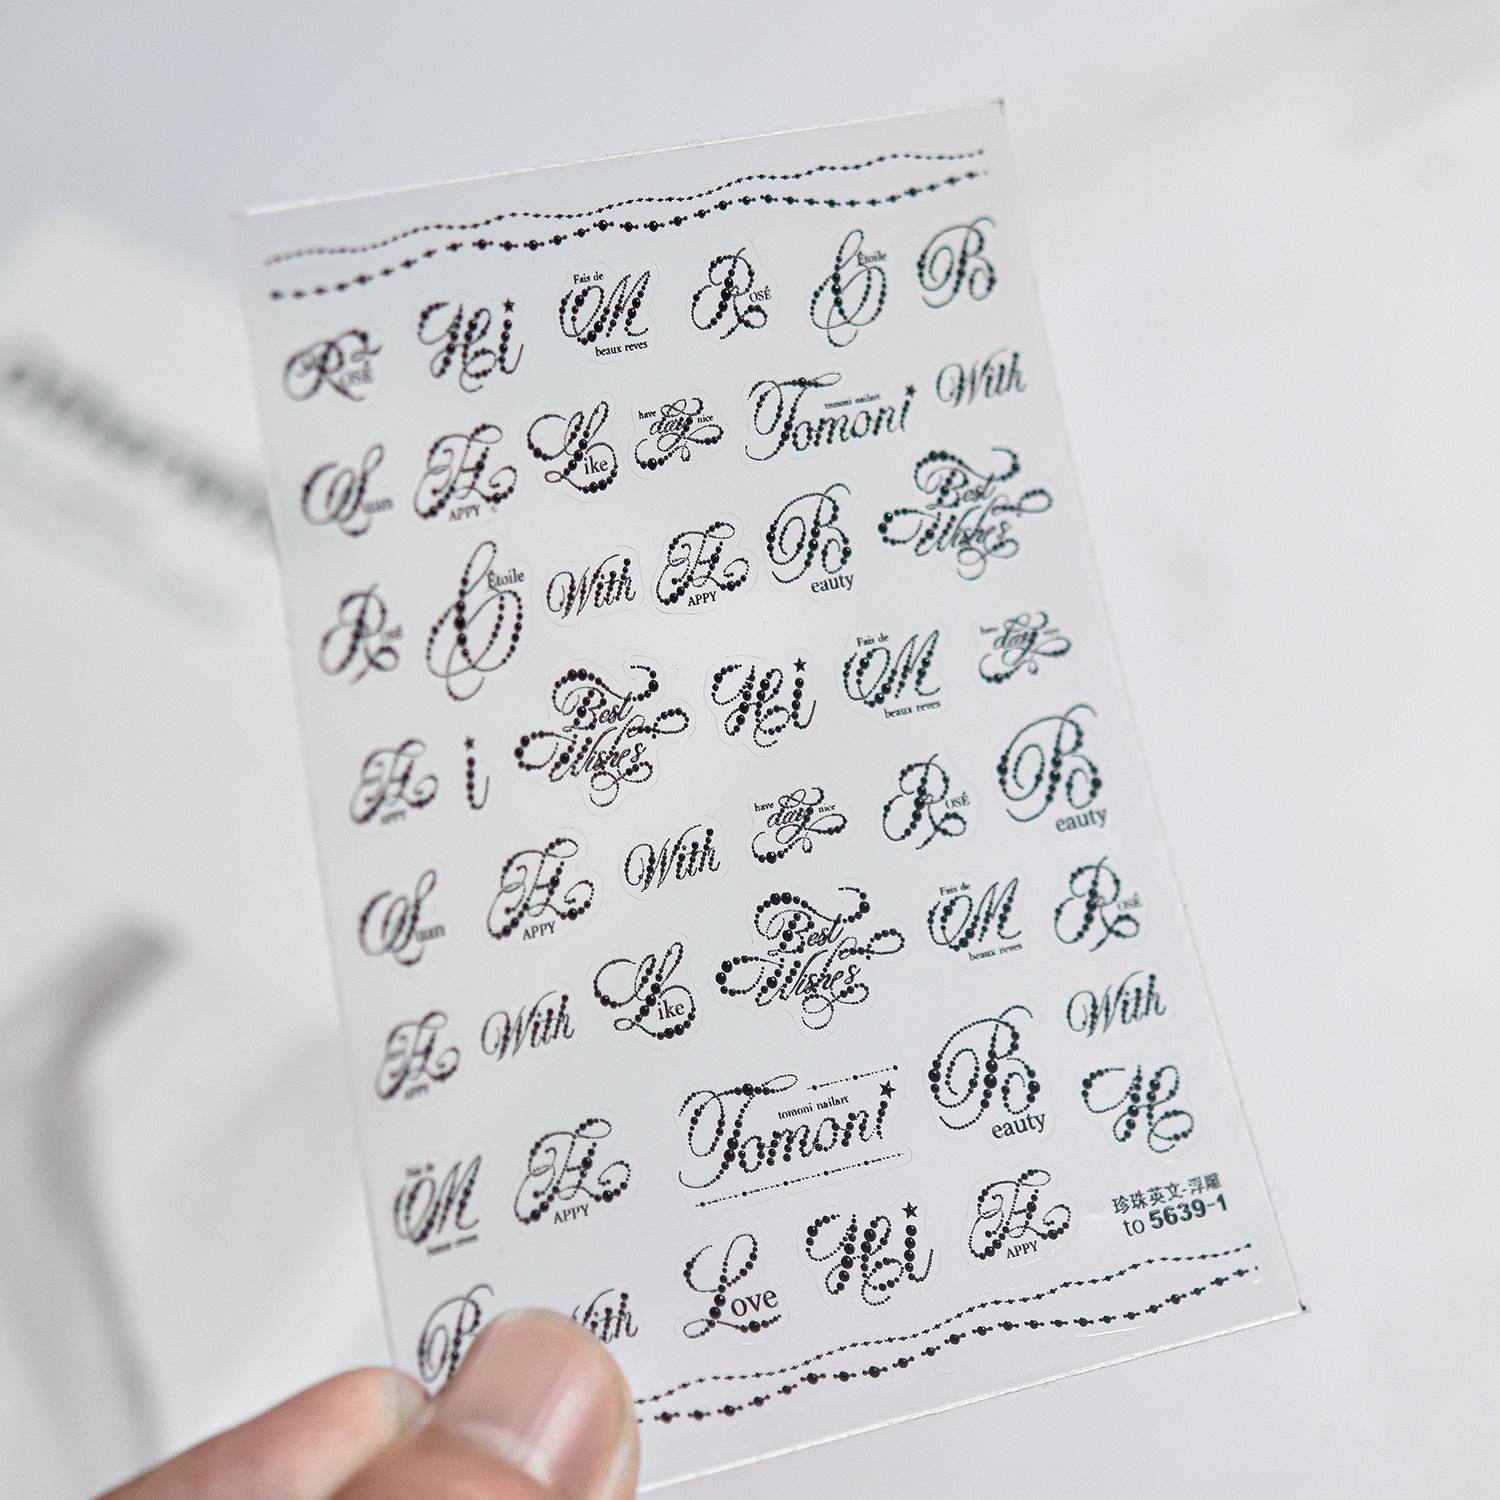 Fais de
M
beaux reves
Rosé
Étoile
B
Rosé
Hi
Like
have
day nice
tomoni nailart
Tomoni
With
Happy
Étoile
With
Happy
Beauty
Best
Wishes
Rosé
Best
Wishes
Hi
Fais de
M
beaux reves
have
day
Happy
i
Happy
With
have
day nice
Rosé
Beauty
With
Like
Best
Wishes
Fais de
M
beaux reves
Rosé
Happy
Happy
tomoni nailart
Tomoni
Beauty
With
H
M
Love
Hi
Happy
珍珠英文-浮雕
to 5639-1